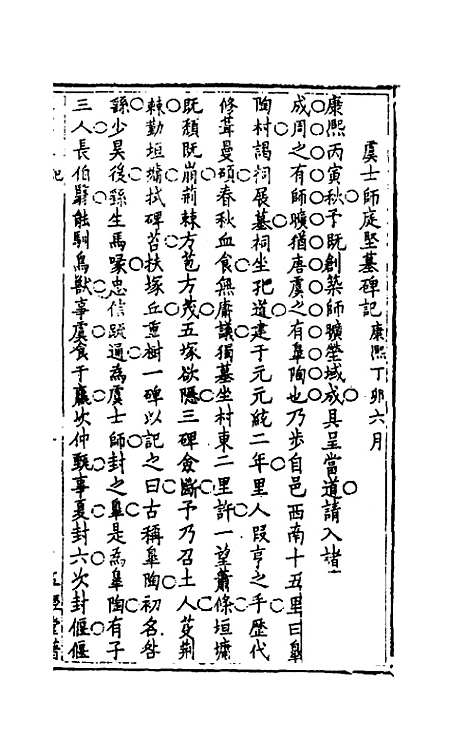 虞士師庭堅墓碑記康熙丁卯六月
康熙丙寅秋予既創築師曠塋域成具呈當道請入諸
成周之有師曠猶唐虞之有皐陶也乃步自邑西南十五里曰皐
陶村謁祠展墓祠坐圯道建于元元統二年里人段亨之手歷代
修葺曼碩春秋血食無庸議獨墓坐村東二里許一望蕭條垣墉
既頹既崩荊棘方苞方茂五塚欲隱三碑僉斷予乃召土人芟荊
棘勤垣墉拭碑苔扶塚丘重樹一碑以記之曰古稱皐陶初名咎
繇少昊後繇生馬喙忠信疏通為虞士師封之皐是為皐陶有子
三人長伯翳能馴鳥獸事虞食于嬴次仲甄事夏封六次封偃偃